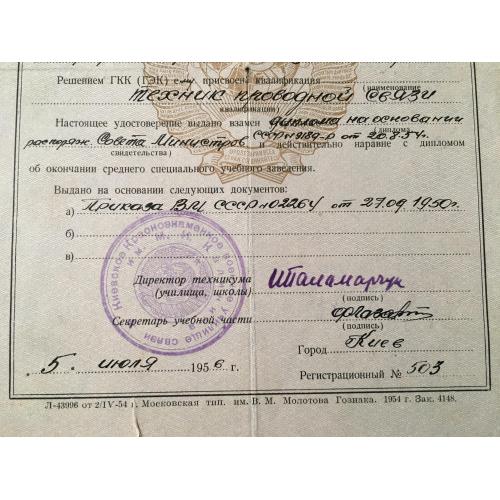 Решением ГКК (ГЭК) ему присвоена квалификация
(наименование
техник проводной связи
квалификации)
Настоящее удостоверение выдано взамен диплома на основании
(диплома
распоряж. Совета Министров СССР №9189-р от 20.8.54г.
свидетельства) и действительно наравне с дипломом
об окончании среднего специального учебного заведения.
Выдано на основании следующих документов:
а) Приказа ВМ СССР №02264 от 27.09.1950г.
б)
в)
Киевское Краснознаменное военное училище связи
Директор техникума
(училища, школы)
(подпись)
Секретарь учебной части
(подпись)
Город Киев
5. июля 1956 г.
Регистрационный № 503
Л-43996 от 2/IV-54 г. Московская тип. им. В. М. Молотова Гознака. 1954 г. Зак. 4148.